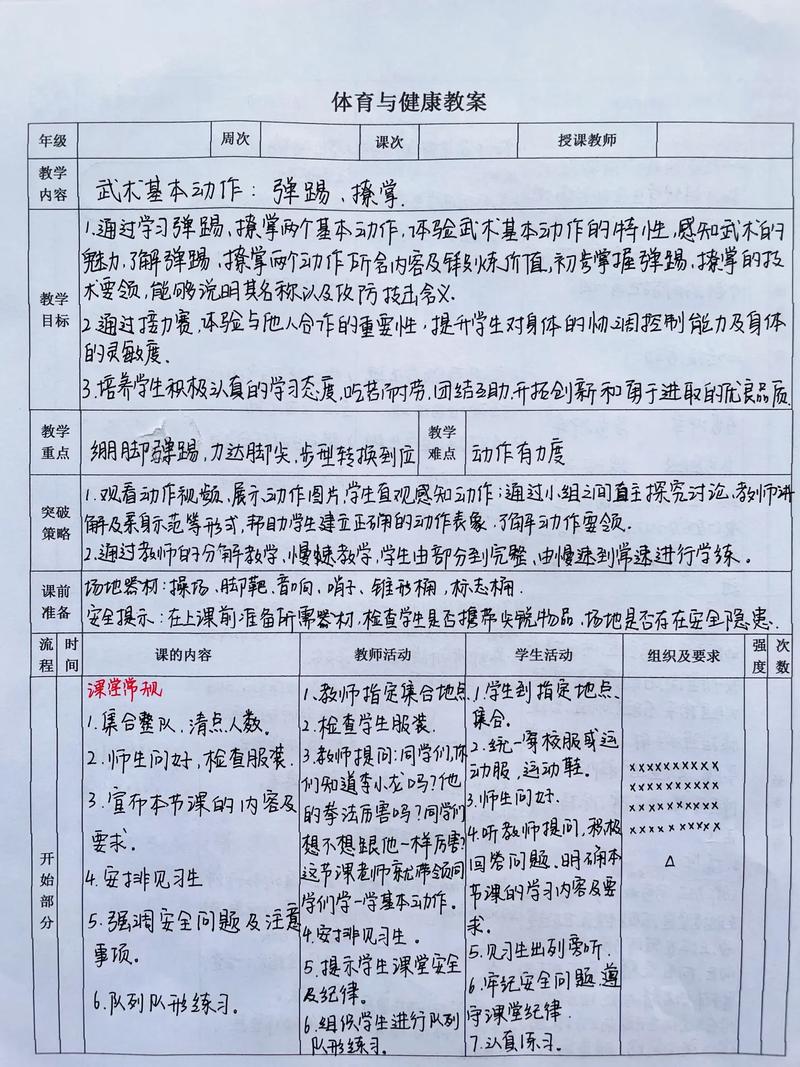 体育与健康教案
年级 周次 课次 授课教师
教学内容
武术基本动作：弹踢、撩掌.
教学目标
1.通过学习弹踢、撩掌两个基本动作,体验武术基本动作的特性,感知武术的
魅力,了解弹踢、撩掌两个动作所含内容及锻炼价值,初步掌握弹踢、撩掌的技
术要领,能够说明其名称以及攻防技击含义.
2.通过接力赛,体验与他人合作的重要性,提升学生对身体的协调控制能力及身体
的灵敏度.
3.培养学生积极认真的学习态度,吃苦耐劳,团结互助,开拓创新和勇于进取的优良品质.
教学重点
绷脚弹踢,力达脚尖,步型转换到位
教学难点
动作有力度
突破策略
1.观看动作视频、展示动作图片,学生直观感知动作；通过小组之间自主探究讨论、教师讲
解及亲身示范等形式,帮助学生建立正确的动作表象.了解动作要领.
2.通过教师的分解教学,慢速教学,学生由部分到完整、由慢速到常速进行学练。
课前准备
场地器材：操场、脚靶、音响、哨子、锥形桶,标志桶.
安全提示：在上课前准备所需器材,检查学生是否携带尖锐物品,场地是否存在安全隐患.
流程 时间 课的内容 教师活动 学生活动 组织及要求 强度 次数
开始部分
课堂常规
1.集合整队、清点人数。
2.师生问好,检查服装.
3.宣布本节课的内容及
要求.
4.安排见习生
5.强调安全问题及注意
事项。
6.队列队形练习.
1.教师指定集合地点
2.检查学生服装.
3.教师提问：同学们,你
们知道李小龙吗?他
的拳法厉害吗?同学们
想不想跟他一样厉害?
这节课老师就带领同
学们学一学基本动作.
4.安排见习生.
5.提示学生课堂安全
及纪律.
6.组织学生进行队列
队形练习.
1.学生到指定地点
集合.
2.统一穿校服或运
动服,运动鞋.
3.师生问好.
4.听教师提问,积极
回答问题、明确本
节课的学习内容及要
求.
5.见习生出列旁听.
6.牢纪安全问题,遵
守课堂纪律.
7.认真练习.
xxxxxxxxxx
xxxxxxxxxx
xxxxxxxxxx
xxxxxxxxxx
△